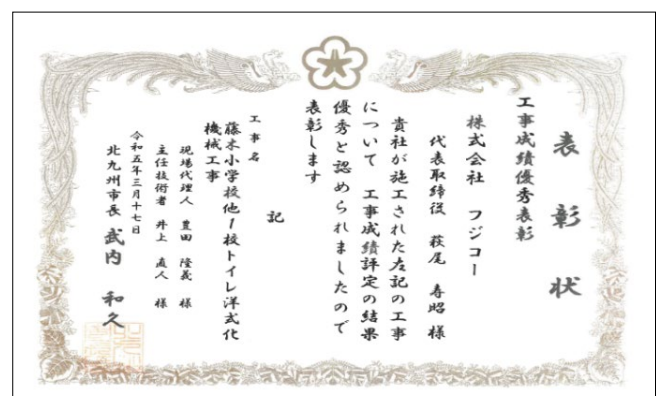 表彰状
工事成績優秀表彰
株式会社 フジコー
代表取締役 萩尾 寿昭 様
貴社が施工された左記の工事
について 工事成績評定の結果
優秀と認められましたので
表彰します
記
工事名
藤木小学校他1校トイレ洋式化
機械工事
現場代理人 豊田 隆義 様
主任技術者 井上 直人 様
令和五年三月十七日
北九州市長 武内 和久